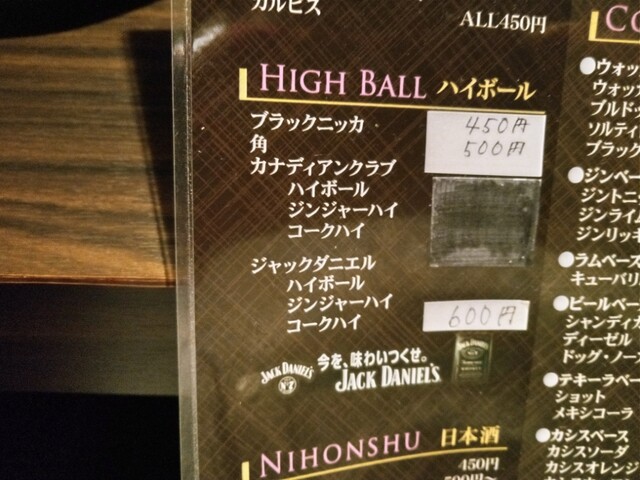 カルピス
ALL450円
HIGH BALL ハイボール
ブラックニッカ 450円
角 500円
カナディアンクラブ
ハイボール
ジンジャーハイ
コークハイ
ジャックダニエル
ハイボール
ジンジャーハイ
コークハイ 600円
今を、味わいつくせ。
JACK DANIEL'S
JACK DANIEL'S
NIHONSHU 日本酒
450円
500円〜
Co
●ウォッ
ウォッカ
ブルドッ
ソルティ
ブラック
●ジンベー
ジントニ
ジンライ
ジンリッキ
●ラムベース
キューバリ
●ビールベー
シャンディ
ディーゼル
ドッグ・ノー
●テキーラベー
ショット
メキシコーラ
●カシスベース
カシスソーダ
カシスオレンジ